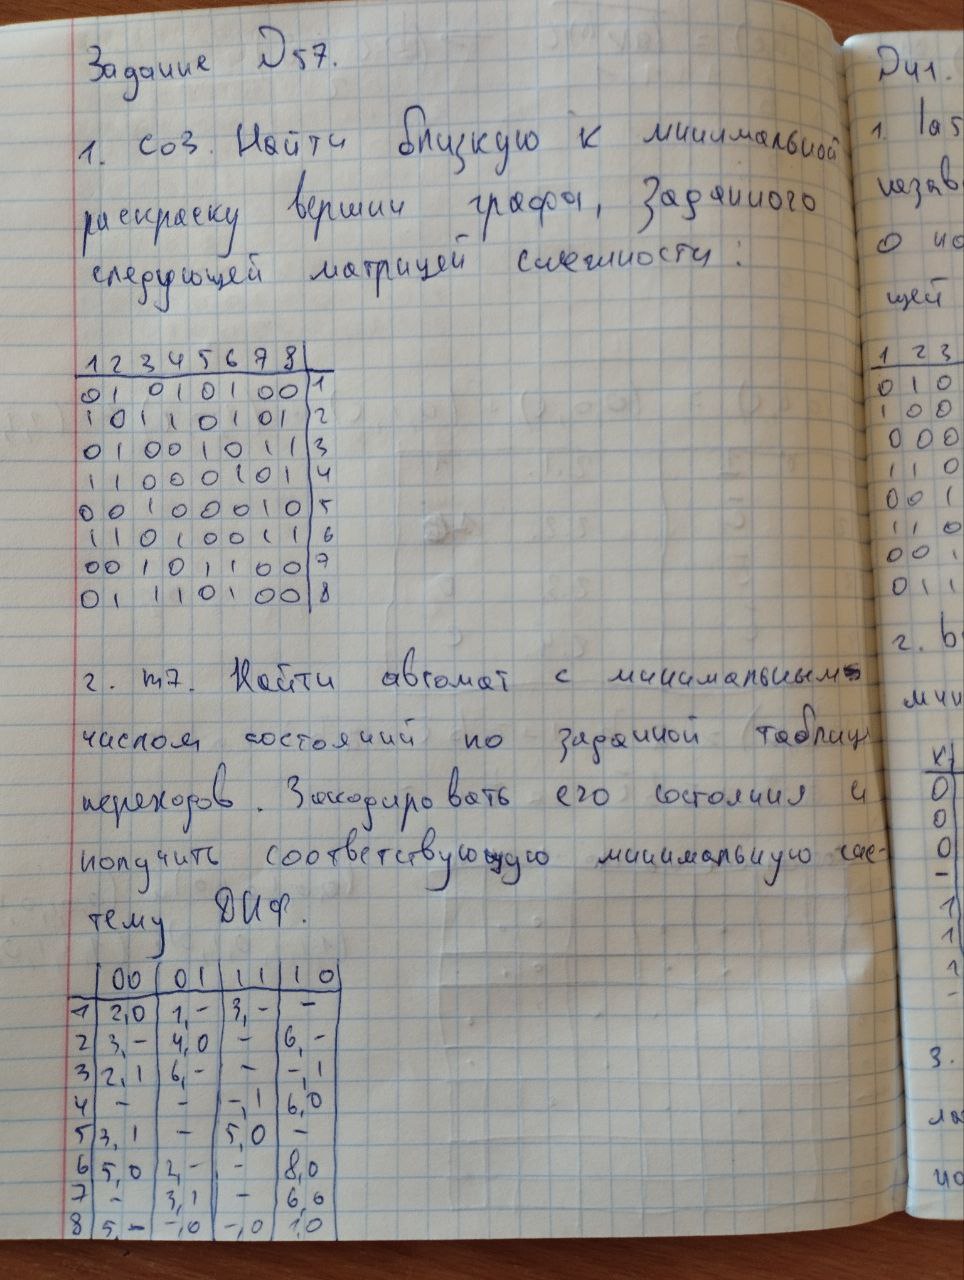 Задание D57.
1. C03. Найти близкую к минимальной
раскраску вершин графа, заданного
следующей матрицей смежности:
1 2 3 4 5 6 7 8
0 1 0 1 0 1 0 0 1
1 0 1 1 0 1 0 1 2
0 1 0 0 1 0 1 1 3
1 1 0 0 0 1 0 1 4
0 0 1 0 0 0 1 0 5
1 1 0 1 0 0 1 1 6
0 0 1 0 1 1 0 0 7
0 1 1 1 0 1 0 0 8
2. m7. Найти автомат с минимальным
числом состояний по заданной таблиц
переходов. Закодировать его состояния и
получить соответствующую минимальную сис-
тему ДНФ.
00 01 11 10
1 2,0 1,- 3,- -
2 3,- 4,0 - 6,-
3 2,1 6,- - -,1
4 - - -,1 6,0
5 3,1 - 5,0 -
6 5,0 2,- - 8,0
7 - 3,1 - 6,0
8 5,- -,0 -,0 1,0
D41.
1.
назав
о
щей
1 2 3
0 1 0
1 0 0
0 0 0
1 1 0
0 0 1
1 1 0
0 0 1
0 1 1
2.
мин
0
0
0
-
1
1
1
-
3.